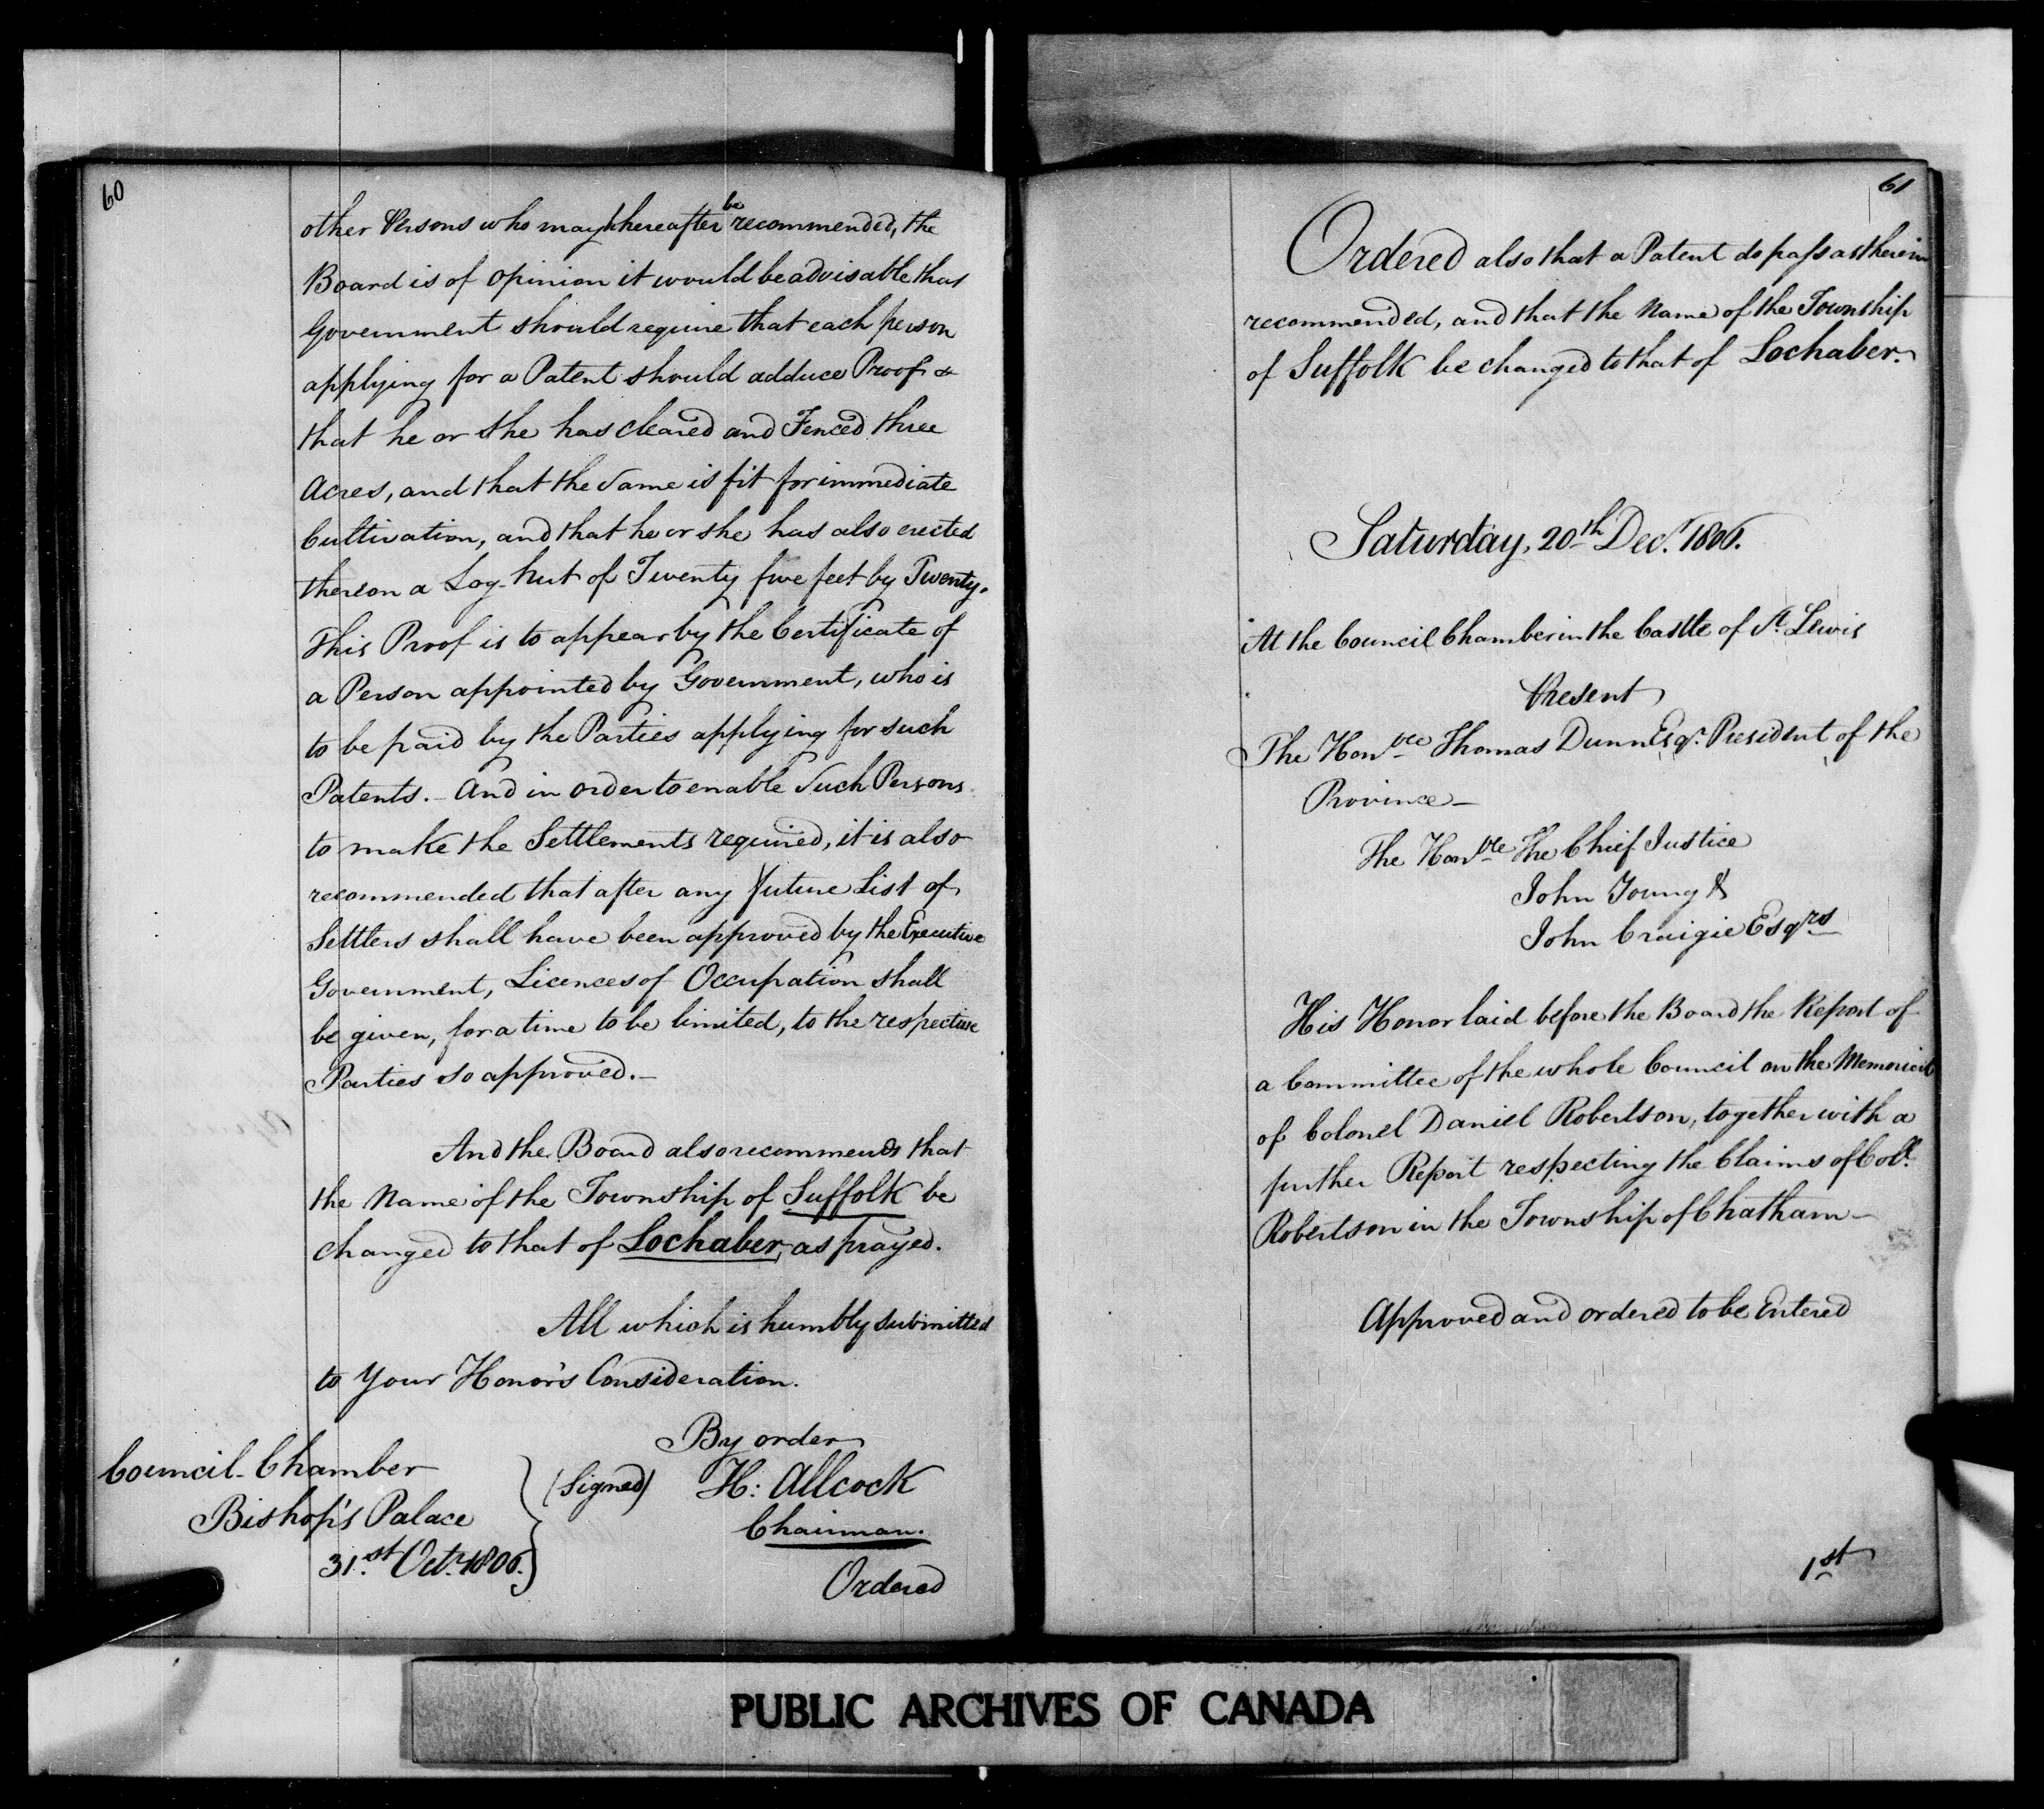 60
other Persons who may hereafter be recommended, the
Board is of opinion it would be advisable that
Government should require that each person
applying for a Patent should adduce Proof
that he or she has cleared and Fenced three
Acres, and that the same is fit for immediate
Cultivation, and that he or she has also erected
thereon a Log-hut of Twenty five feet by Twenty.
This Proof is to appear by the Certificate of
a Person appointed by Government, who is
to be paid by the Parties applying for such
Patents. – And in order to enable such Persons
to make the Settlements required, it is also
recommended that after any future List of
Settlers shall have been approved by the Executive
Government, Licences of Occupation shall
be given, for a time to be limited, to the respective
Parties so approved. –
And the Board also recommends that
the Name of the Township of Suffolk be
changed to that of Lochaber, as prayed.
All which is humbly submitted
to Your Honor's Consideration.
By order
Council-Chamber
Bishop's Palace
31.st Octr. 1806.
(Signed) H: Allcock
Chairman.
Ordered
61
Ordered also that a Patent do pass as therein
recommended, and that the Name of the Township
of Suffolk be changed to that of Lochaber.
Saturday, 20th Decr. 1806.
At the Council Chamber in the Castle of St. Lewis
Present
The Honble Thomas Dunn Esqr. President of the
Province –
The Honble The Chief Justice
John Young &
John Craigie Esqrs
His Honor laid before the Board the Report of
a Committee of the whole Council on the Memorial
of Colonel Daniel Robertson, together with a
further Report respecting the Claims of Coll.
Robertson in the Township of Chatham –
Approved and ordered to be Entered
1st
PUBLIC ARCHIVES OF CANADA